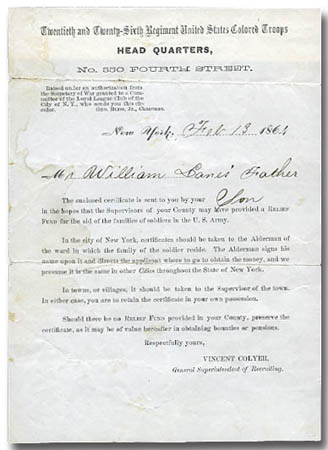 Twentieth and Twenty-Sixth Regiment United States Colored Troops
HEAD QUARTERS,
No. 350 FOURTH STREET.
Raised under an authorization from
the Secretary of War granted to a Com-
mittee of the Loyal League Club of the
City of N. Y., who sends you this cir-
cular. Geo. Bliss, Jr., Chairman.
New York, Feb 13 1864
Mr William Davis' Father
The enclosed certificate is sent to you by your Son
in the hopes that the Supervisors of your County may have provided a RELIEF
FUND for the aid of the families of soldiers in the U. S. Army.
In the city of New York, certificates should be taken to the Alderman of
the ward in which the family of the soldier reside. The Alderman signs his
name upon it and directs the applicant where to go to obtain the money, and we
presume it is the same in other Cities throughout the State of New York.
In towns, or villages, it should be taken to the Supervisor of the town.
In either case, you are to retain the certificate in your own possession.
Should there be no RELIEF FUND provided in your County, preserve the
certificate, as it may be of value hereafter in obtaining bounties or pensions.
Respectfully yours,
VINCENT COLYER,
General Superintendent of Recruiting.